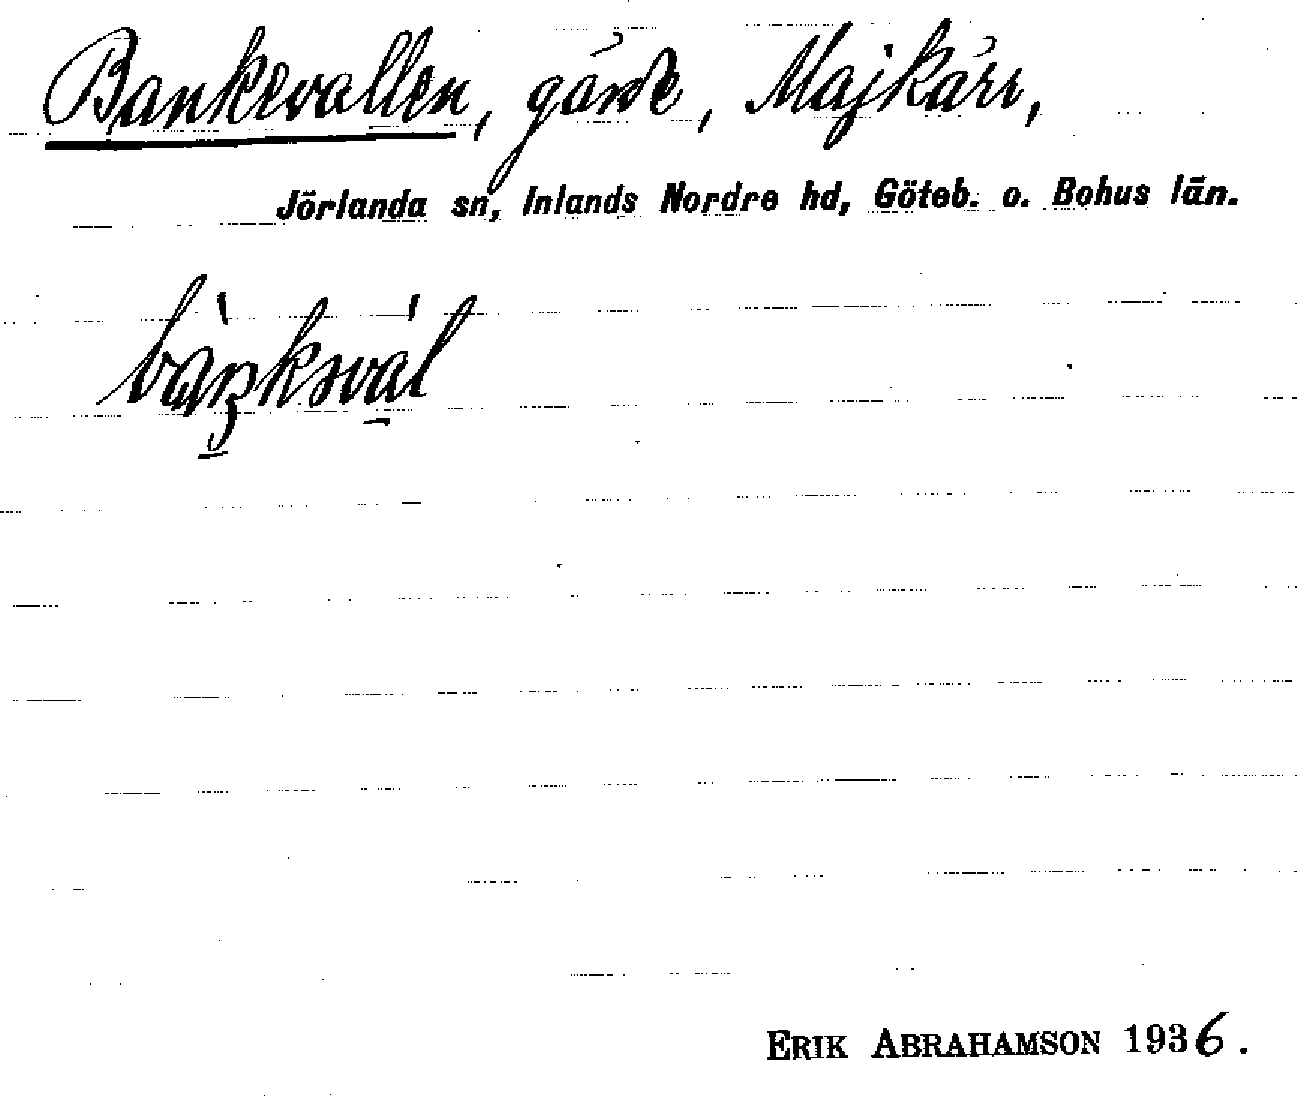 Bankevallen, gärde, Majkärr,
Jörlanda sn, Inlands Nordre hd, Göteb. o. Bohus län.
ERIK ABRAHAMSON 1936.